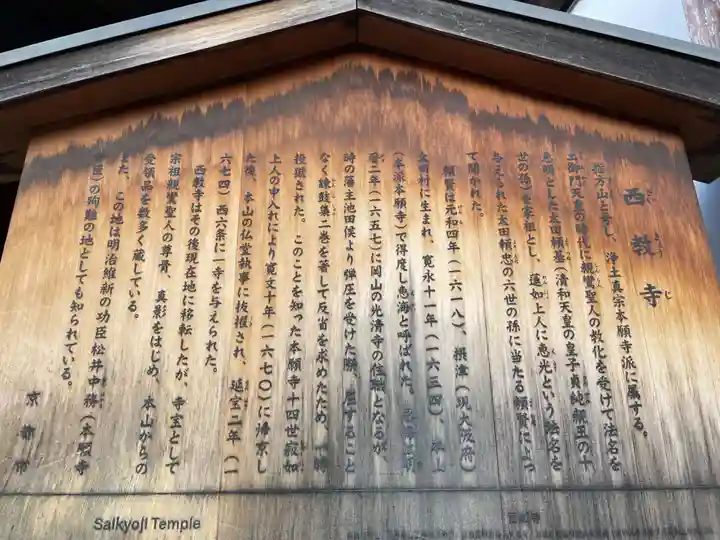 西教寺
さい きょう じ
指方山と号し、浄土真宗本願寺派に属する。
土御門天皇の時代に親鸞聖人の教化を受けて法名を
恵明とした太田頼基(清和天皇の皇子貞純親王の十
世の孫)を家祖とし、蓮如上人に恵光という法名を
与えられた太田頼忠の六世の孫に当たる頼賢によっ
て開かれた。
頼賢は元和四年(一六一八)、摂津(現大阪府)
太田村に生まれ、寛永十一年(一六三四)、
(本派本願寺)で得度し恵海と呼ばれた。
暦二年(一六五七)に岡山の光清寺の住職となるが、
時の藩主池田侯より弾圧を受けた際、屈すること
なく諫鼓集二巻を著して反省を求めたため、一時
投獄された。このことを知った本願寺十四世寂如
上人の申入れにより寛文十年(一六七〇)に帰京し
た後、本山の仏堂執事に抜擢され、延宝二年(一
六七四)西六条に一寺を与えられた。
西教寺はその後現在地に移転したが、寺宝として
宗祖親鸞聖人の尊骨、真影をはじめ、本山からの
受領品を数多く蔵している。
また、この地は明治維新の功臣松井中務(本願寺
臣)の殉難の地としても知られている。
京都市
Saikyoji Temple
西教寺